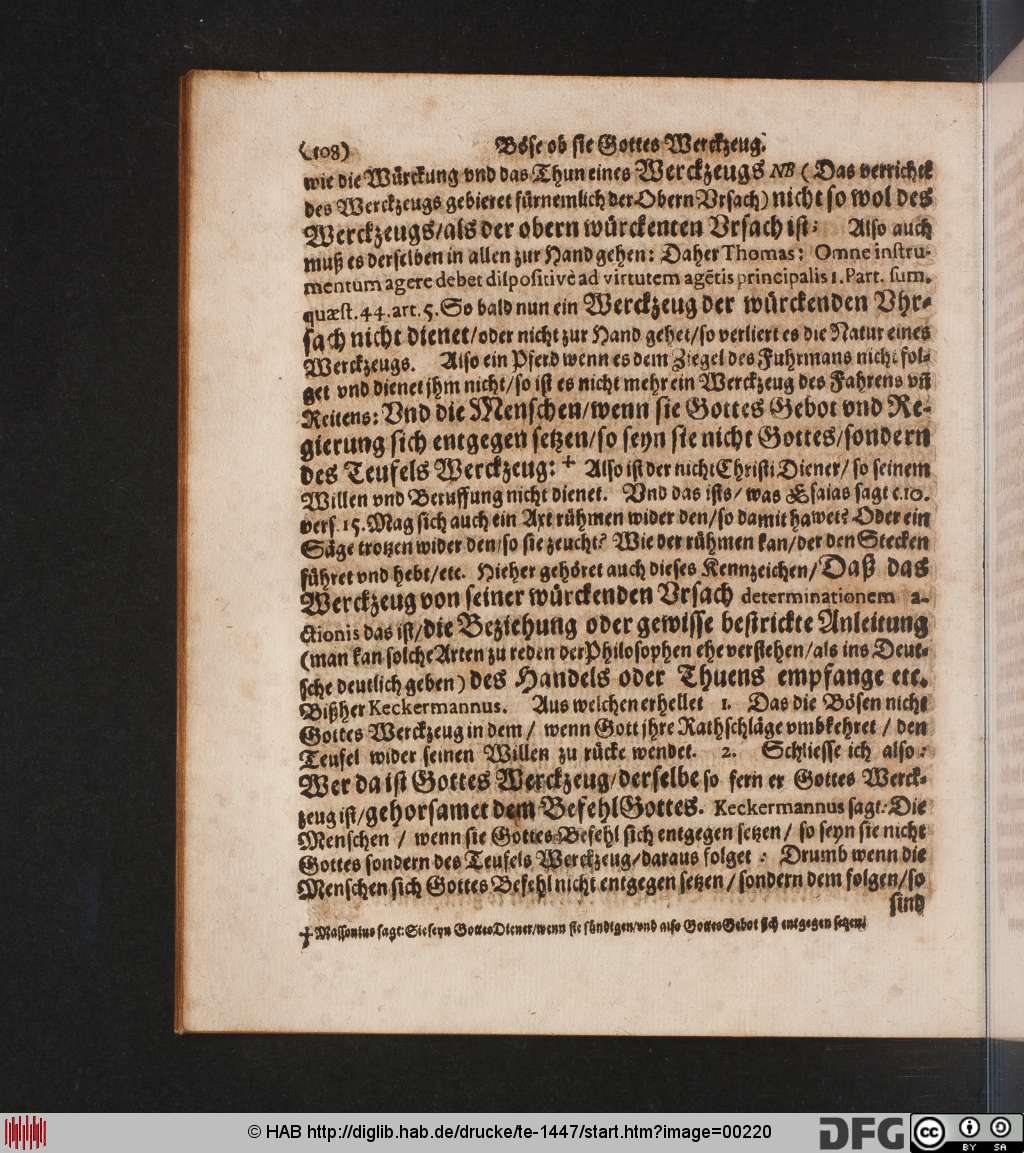 (108) Böse ob sie Gottes Werckzeug.
wie die Würckung vnd das Thun eines Werckzeugs NB (Das verrichte
des Werckzeugs gebieret fürnemlich der Obern Vrsach) nicht so wol des
Werckzeugs/als der obern würckenten Vrsach ist: Also auch
muß es derselben in allen zur Hand gehen: Daher Thomas: Omne instru-
mentum agere debet dispositivè ad virtutem agētis principalis 1. Part. sum.
quæst. 44. art. 5. So bald nun ein Werckzeug der würckenden Vhr-
sach nicht dienet/oder nicht zur Hand gehet/so verliert es die Natur eines
Werckzeugs. Also ein Pferd wenn es dem Ziegel des Fuhrmans nicht fol-
get vnd dienet jhm nicht/so ist es nicht mehr ein Werckzeug des Fahrens vñ
Reitens: Vnd die Menschen/wenn sie Gottes Gebot vnd Re-
gierung sich entgegen setzen/so seyn sie nicht Gottes/sondern
des Teufels Werckzeug: + Also ist der nicht Christi Diener/ so seinem
Willen vnd Beruffung nicht dienet. Vnd das ists/ was Esaias sagt c. 10.
vers. 15. Mag sich auch ein Axt rühmen wider den/so damit hawet? Oder ein
Säge trotzen wider den/so sie zeucht? Wie der rühmen kan/der den Stecken
führet vnd hebt/etc. Hieher gehöret auch dieses Kennzeichen/Daß das
Werckzeug von seiner würckenden Vrsach determinationem a-
ctionis das ist/die Beziehung oder gewisse bestrickte Anleitung
(man kan solche Arten zu reden der Philosophen ehe verstehen/als ins Deut-
sche deutlich geben) des Handels oder Thuens empfange etc.
Bißher Keckermannus. Aus welchen erhellet 1. Das die Bösen nicht
Gottes Werckzeug in dem/ wenn Gott jhre Rathschläge vmbkehret / den
Teufel wider seinen Willen zu rücke wendet. 2. Schliesse ich also:
Wer da ist Gottes Werckzeug/derselbe so fern er Gottes Werck-
zeug ist/gehorsamet dem Befehl Gottes. Keckermannus sagt: Die
Menschen / wenn sie Gottes Befehl sich entgegen setzen/ so seyn sie nicht
Gottes sondern des Teufels Werckzeug/daraus folget: Drumb wenn die
Menschen sich Gottes Befehl nicht entgegen setzen/sondern dem folgen/so
sind
+ Massonius sagt: Sie seyn Gottes Diener/wenn sie sündigen/vnd also Gottes Gebot sich entgegen setzen.
© HAB http://diglib.hab.de/drucke/te-1447/start.htm?image=00220
DFG
cc BY SA